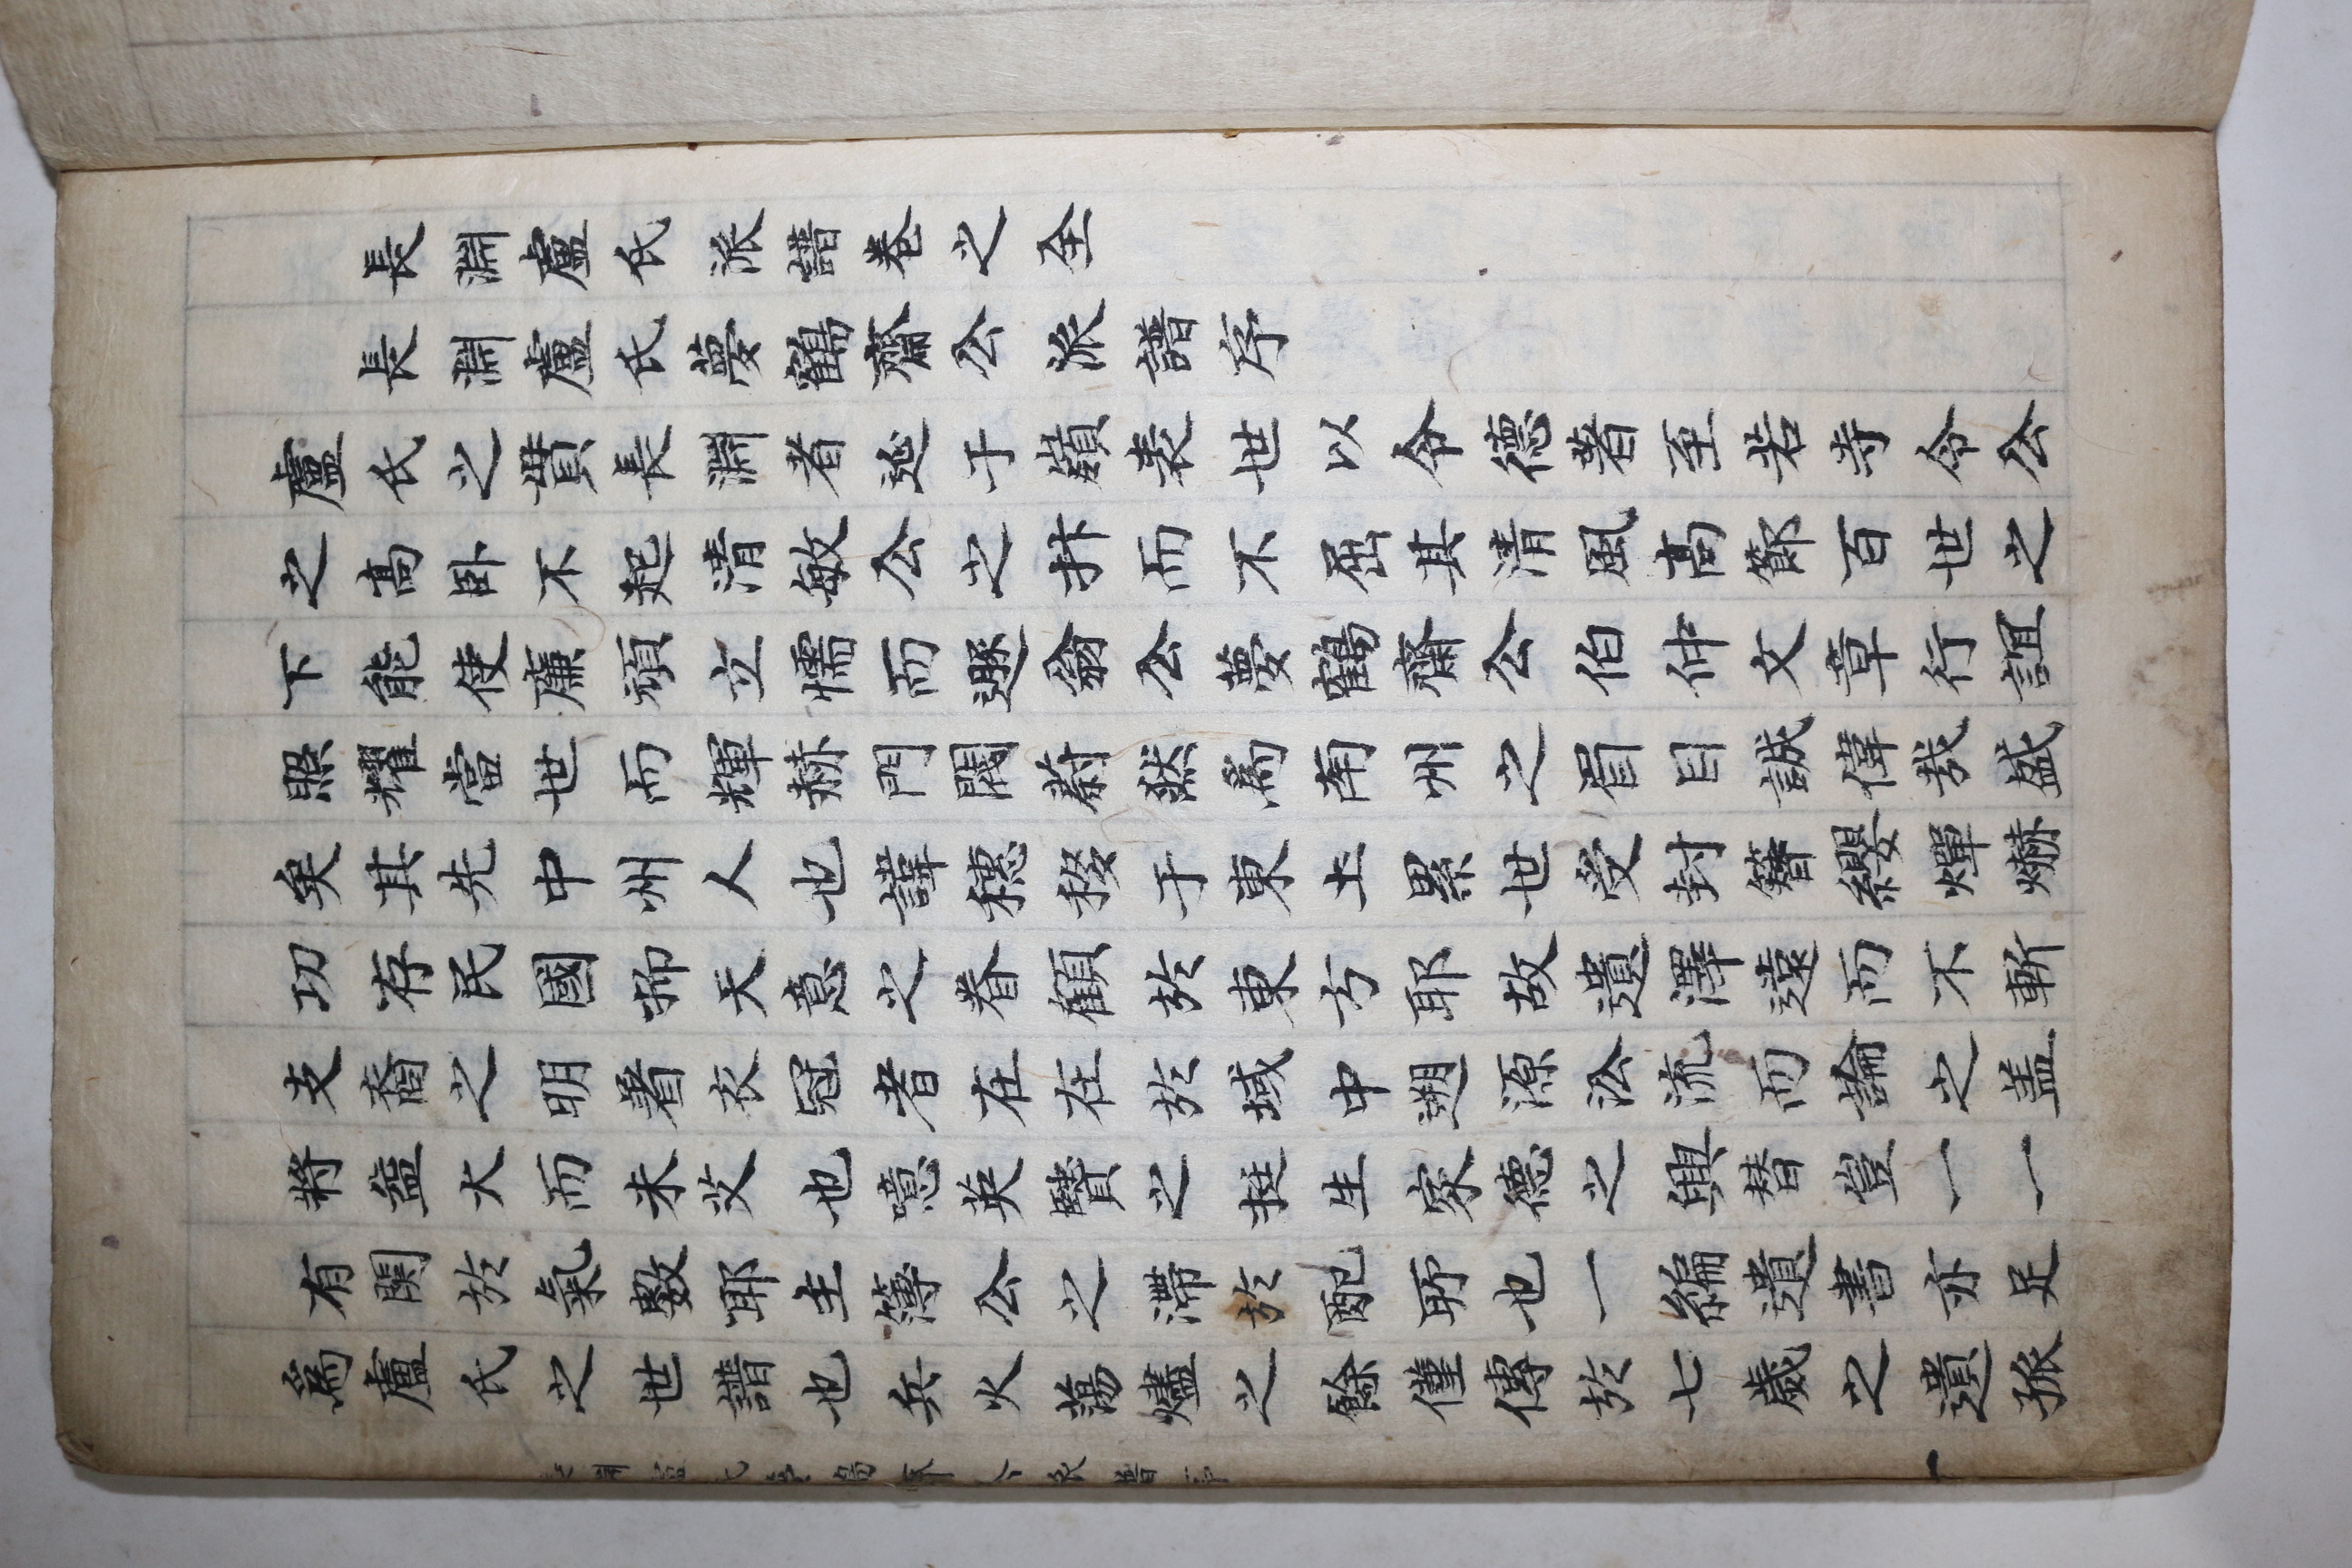 長淵盧氏派譜卷之全
長淵盧氏夢鶴齋公派譜序
盧氏之貫長淵者延于嶺表世以令德著至若寺令公
之高卧不起清敏公之抃而不屈其清風高節百世之
下能使廉頑立懦而遯翁公夢鶴齋公伯仲文章行誼
照耀當世而輝赫門閥蔚然爲南州之眉目誠偉哉盛
矣其先中州人也諱穗移于東土累世受封簪纓燀爀
功存民國抑天意之眷顧於東方耶故遺澤遠而不斬
支裔之明著衣冠者在在於域中遡源沿流而論之盖
將益大而未艾也噫英賢之挺生家德之興替豈一一
有関於氣數耶主簿公之滯於配所也一編遺書亦足
爲盧氏之世譜也兵火蕩燼之餘僅傳於七歲之遺孤
長淵盧氏夢鶴齋公派譜序
一